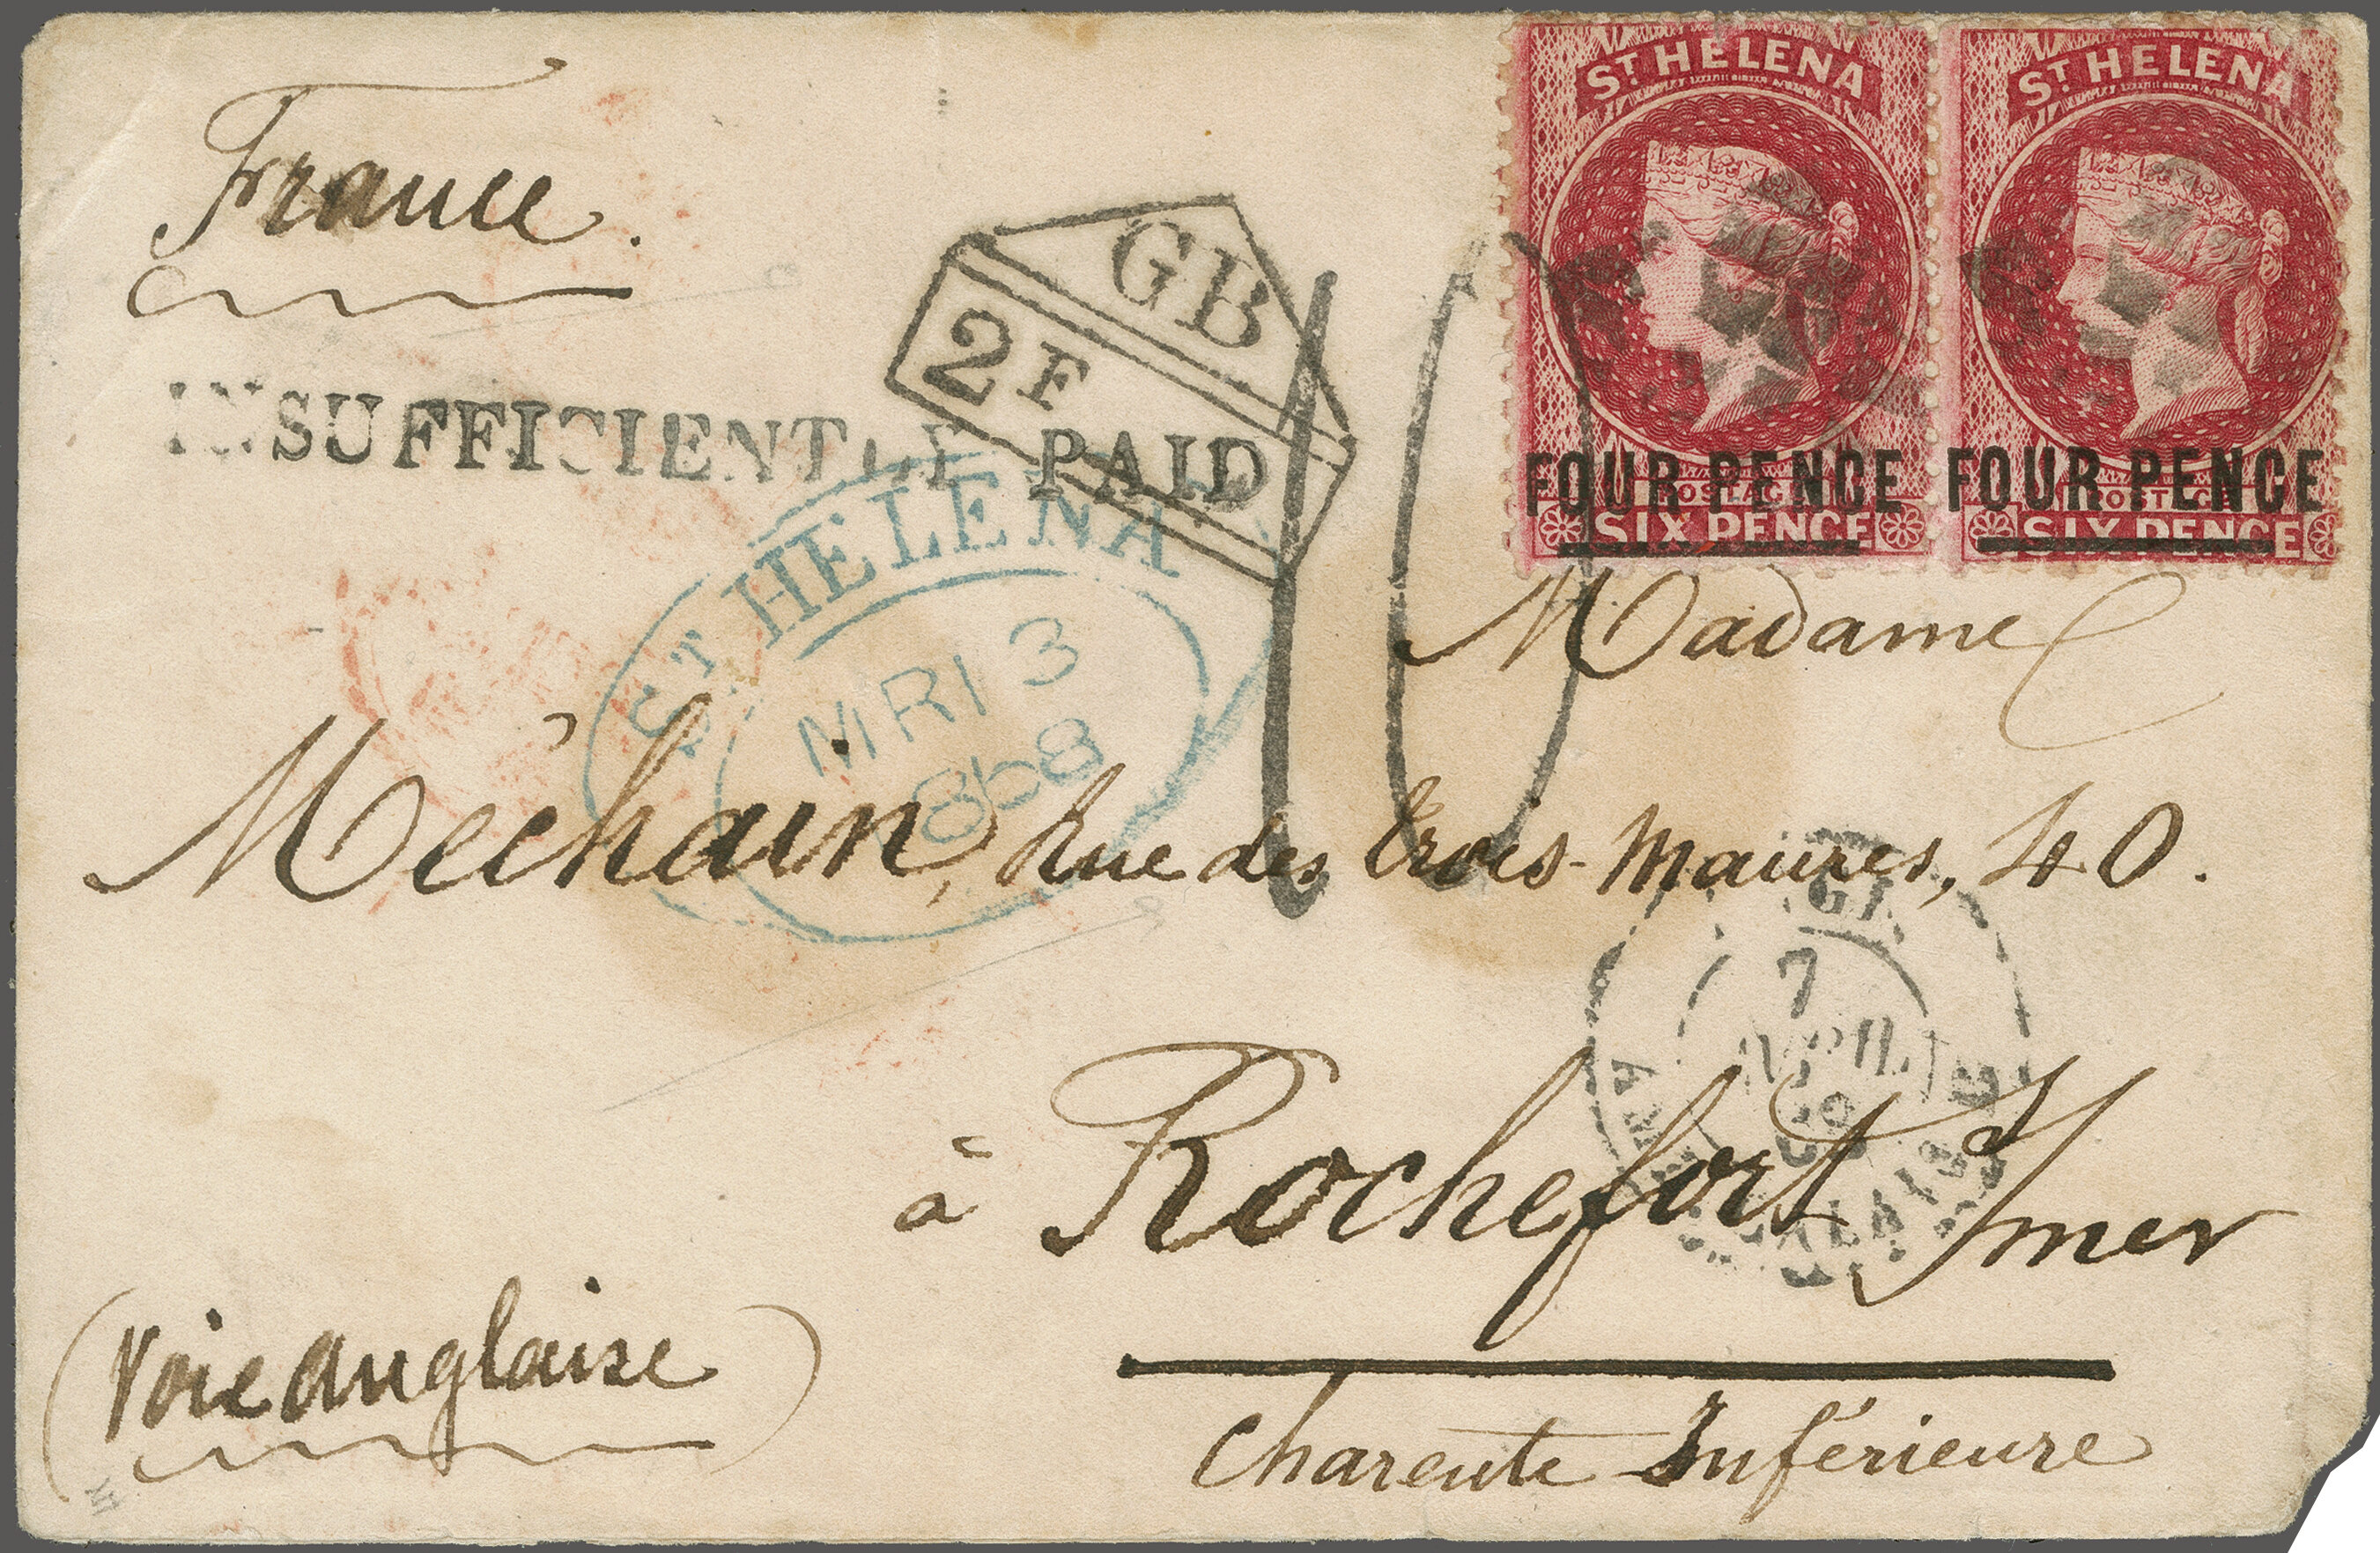 France.
ST HELENA
FOUR PENCE
POSTAGE
SIX PENCE
ST HELENA
FOUR PENCE
POSTAGE
SIX PENCE
GB
2F
INSUFFICIENTLY PAID
10
ST HELENA
MR 13
1868
Madame
Méchain, Rue des Trois-Maures, 40.
7
AVRIL
68
à Rochefort s/mer
(Voie anglaise)
Charente Inférieure